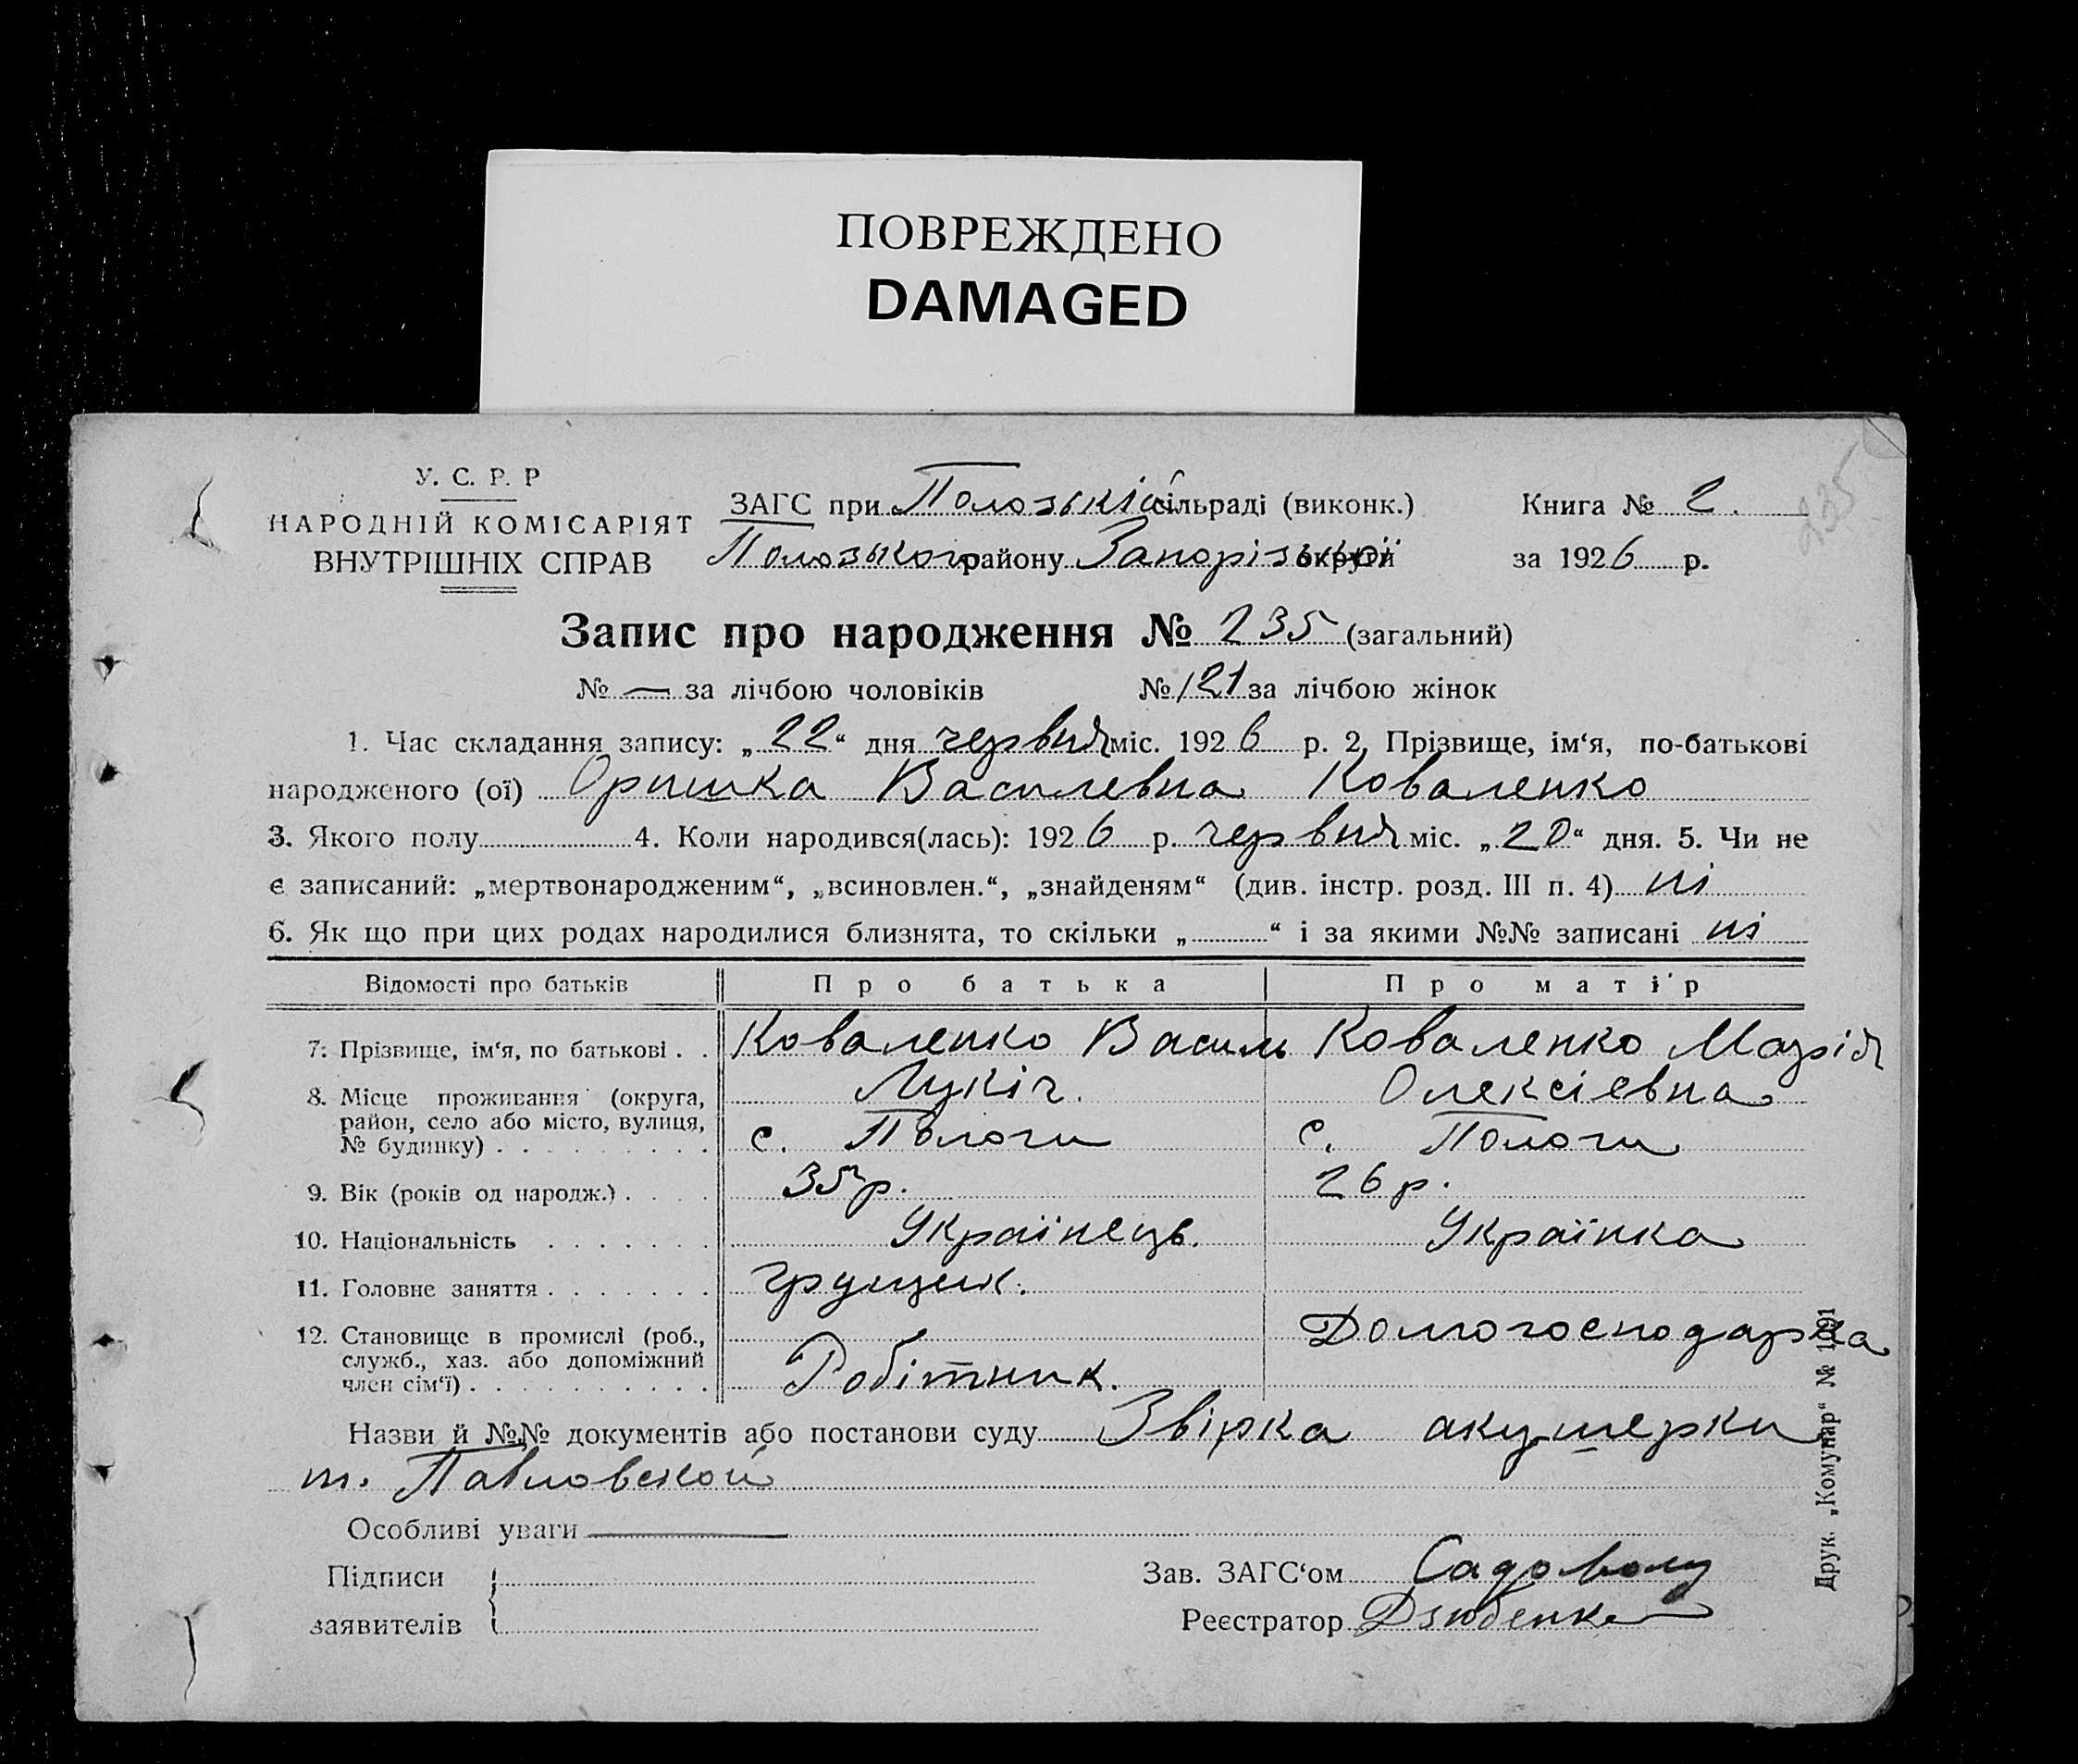 ПОВРЕЖДЕНО
DAMAGED
У. С. Р. Р
НАРОДНІЙ КОМІСАРІЯТ
ВНУТРІШНІХ СПРАВ
ЗАГС при Полозькій сільраді (виконк.)
Полозького району Запорізької округи
Книга № 2.
за 1926 р.
235
Запис про народження № 235 (загальний)
№ — за лічбою чоловіків № 121 за лічбою жінок
1. Час складання запису: „22“ дня червня міс. 1926 р. 2. Прізвище, ім‘я, по-батькові
народженого (ої) Оришка Василевна Коваленко
3. Якого полу 4. Коли народився(лась): 1926 р. червня міс. „20“ дня. 5. Чи не
є записаний: „мертвонародженим“, „всиновлен.“, „знайденям“ (див. інстр. розд. III п. 4) ні
6. Як що при цих родах народилися близнята, то скільки „ “ і за якими №№ записані ні
Відомості про батьків Про батька Про матір
7. Прізвище, ім‘я, по батькові . . Коваленко Василь Коваленко Марія
Лукіч. Олексієвна
8. Місце проживання (округа,
район, село або місто, вулиця,
№ будинку) . . . . . . . . . с. Пологи с. Пологи
9. Вік (років од народж.) . . . . 35 р. 26 р.
10. Національність . . . . . . . Українець. Українка
11. Головне заняття . . . . . . . грущик.
12. Становище в промислі (роб.,
служб., хаз. або допоміжний
член сім‘ї) . . . . . . . . . . Робітник. Домогосподарка
Назви й №№ документів або постанови суду Звірка акушерки
т. Павловской
Особливі уваги
Підписи
заявителів
Зав. ЗАГС‘ом
Реєстратор Дзюбенко
Друк. „Комунар“ № 1091